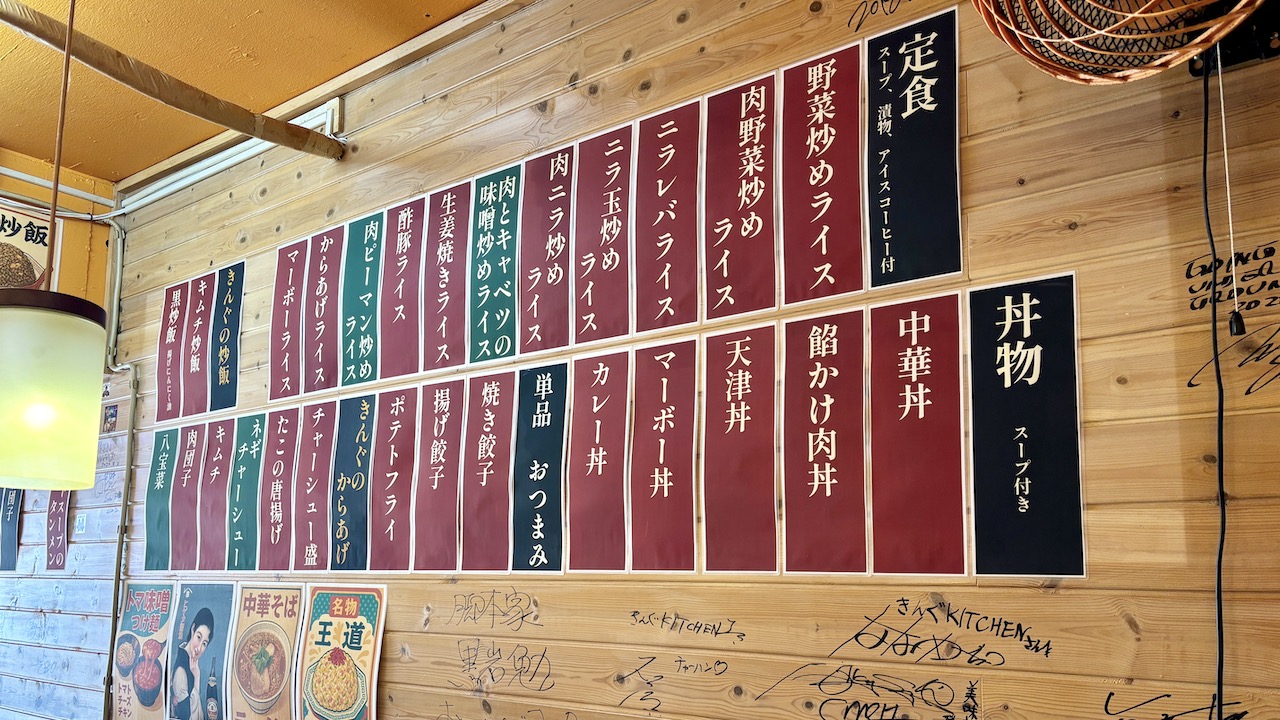 定食
スープ、漬物、アイスコーヒー付
野菜炒めライス
肉野菜炒め
ライス
ニラレバライス
ニラ玉炒め
ライス
肉ニラ炒め
ライス
肉とキャベツの
味噌炒めライス
生姜焼きライス
酢豚ライス
肉ピーマン炒め
ライス
からあげライス
マーボーライス
きんぐの炒飯
キムチ炒飯
黒炒飯
丼物
スープ付き
中華丼
餡かけ肉丼
天津丼
マーボー丼
カレー丼
単品 おつまみ
焼き餃子
揚げ餃子
ポテトフライ
きんぐの
からあげ
チャーシュー盛
たこの唐揚げ
ネギ
チャーシュー
キムチ
肉団子
八宝菜
炒飯
スープの
タンメン
名物
王道
中華そば
トマ味噌
つけ麺
トマト
チーズ
チキン
脚本家
黒岩勉
きんぐKITCHENさんへ
チャーハン
美味